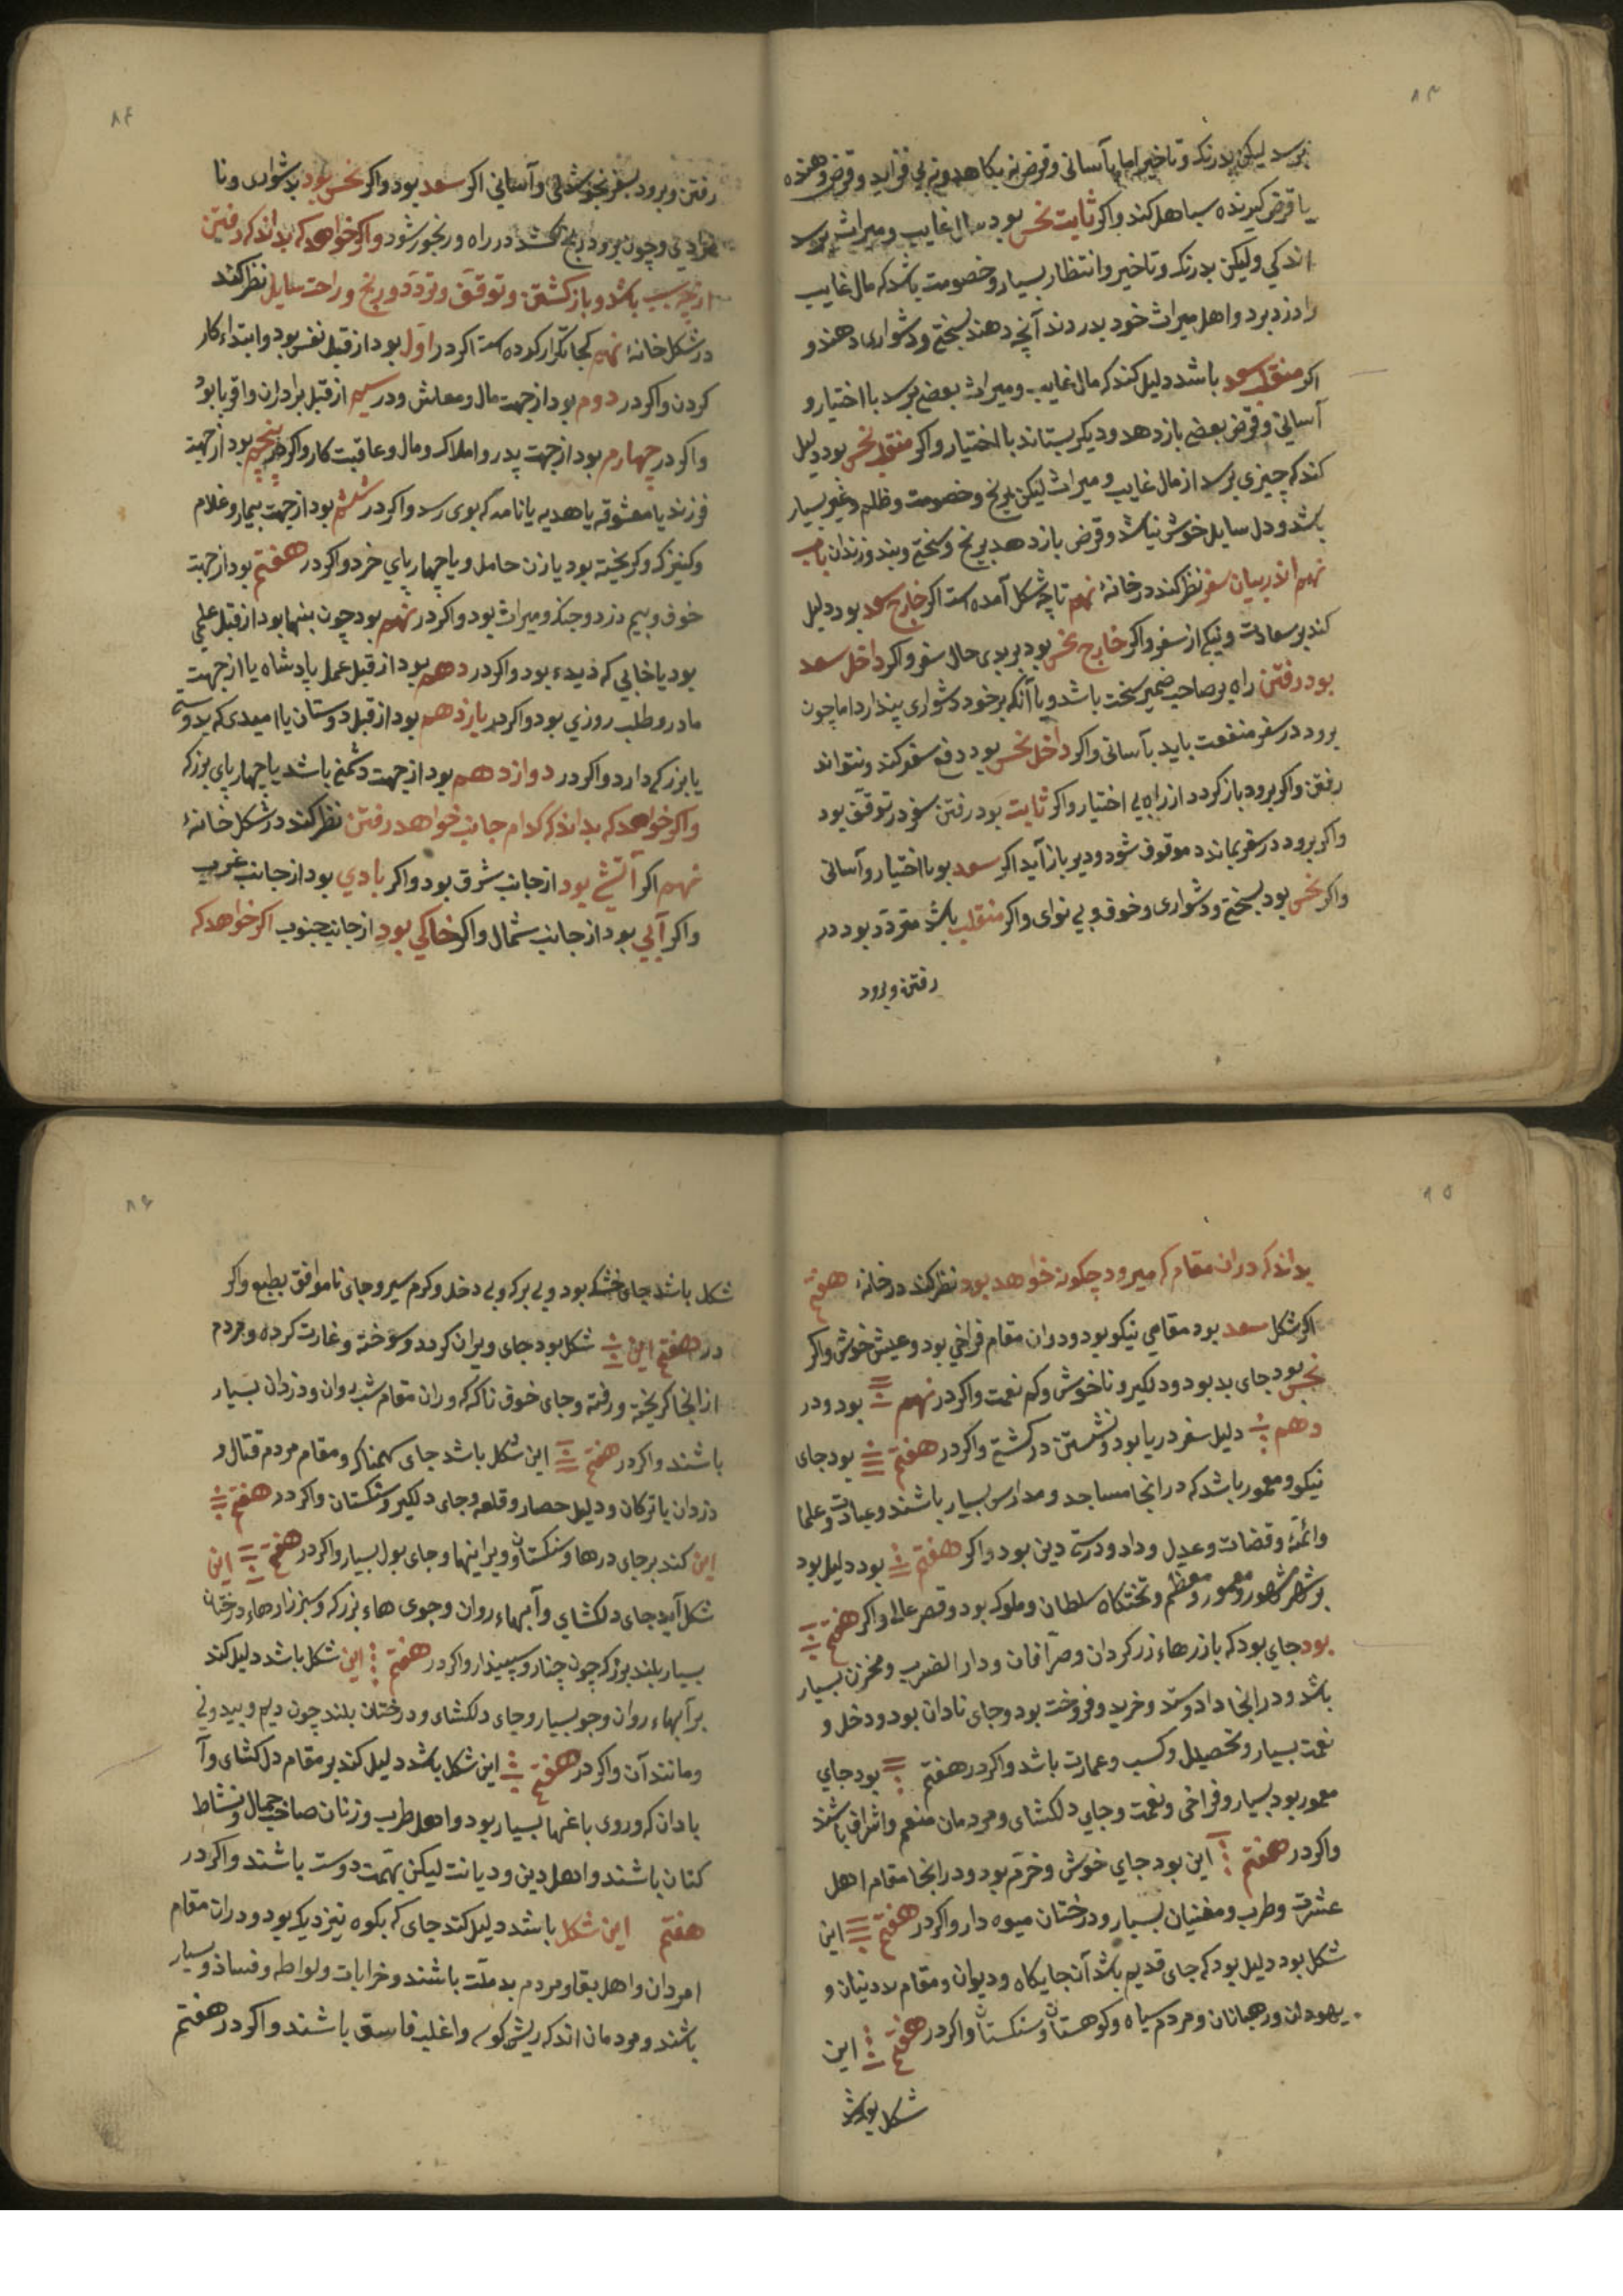 ۸۳
برسد لیکن بدرنک وتاخیر اما بآسانی وقرض نه بکاهد ونه بی فزاید وقرض دهنده
یا قرض کیرنده سباهل کند واکر ثابت نحس بود مال غایب ومیراث برسد
اندکی ولیکن بدرنک وتاخیر وانتظار بسیار وخصومت باشد که مال غایب
را دزد برد واهل میراث خود بدردند آنچه دهند بسختی ودشواری دهند و
اکر منقلب سعد باشد دلیل کند که مال غایب ومیراث بعضی برسد با اختیار و
آسانی وقرض بعضی باز دهد ودیکر بستاند با اختیار واکر منقلب نحس بود دلیل
کند که چیزی برسد از مال غایب ومیراث لیکن برنج وخصومت وظلم وغیر بسیار
باشد ودل سایل خوش نباشد وقرض باز دهد برنج وسختی وبند وزندان باب
نهم اندر بیان سفر نظر کند در خانهٔ نهم تا چه شکل آمده است اکر خارج سعد بود دلیل
کند بر سعادت ونیکی از سفر واکر خارج نحس بود بر بدی حال سفر واکر داخل سعد
بود رفتن راه بر صاحب ضمیر سخت باشد وبا آنکه بر خود دشواری پندارد اما چون
برود در سفر منفعت یابد بآسانی واکر داخل نحس بود دفع سفر کند ونتواند
رفتن واکر برود باز کردد از راه بی اختیار واکر ثابت بود رفتن سفر در توقف بود
واکر برود در سفر بماند موقوف شود ودیر باز آید اکر سعد بود با اختیار وآسانی
واکر نحس بود بسختی ودشواری وخوف وبی نوای واکر منقلب باشد متردد بود در
رفتن وبرود
۸۴
رفتن وبرود بسفر بخوشدلی وآسانی اکر سعد بود واکر نحس بود بدشواری ونا
مرادی وچون برود رنج کشد در راه ورنجور شود واکر خواهد که بداند که رفتن
از چه سبب باشد وباز کشتن وتوقف وتردد ورنج وراحت سایل نظر کند
در شکل خانهٔ نهم کجا تکرار کرده است اکر در اول بود از قبل نفس بود وابتداء کار
کردن واکر در دوم بود از جهت مال ومعاش ودر سیم از قبل برادران واقربا بود
واکر در چهارم بود از جهت پدر واملاک ومال وعاقبت کار واکر در پنجم بود از جهت
فرزند یا معشوقه یا هدیه یا نامه که بوی رسد واکر در ششم بود از جهت بیمار وغلام
وکنیزک وکریخته بود یا زن حامل ویا چهارپای خرد واکر در هفتم بود از جهت
خوف وبیم دزد وجنک ومیراث بود واکر در نهم بود چون بنهم بود از قبل علمی
بود یا خوابی که دیده بود واکر در دهم بود از قبل عمل پادشاه یا از جهت
مادر وطلب روزی بود واکر در یازدهم بود از قبل دوستان یا امیدی که بدوستی
یا بزرکی دارد واکر در دوازدهم بود از جهت دشمنی باشد یا چهارپای بزرک
واکر خواهد که بداند که کدام جانب خواهد رفتن نظر کند در شکل خانهٔ
نهم اکر آتشی بود از جانب شرق بود واکر بادی بود از جانب غرب
واکر آبی بود از جانب شمال واکر خاکی بود از جانب جنوب اکر خواهد که
۸۵
بداند که در ان مقام که میرود چکونه خواهد بود نظر کند در خانهٔ هفتم
اکر شکل سعد بود مقامی نیکو بود ودر ان مقام فراخی بود وعیش خوش واکر
نحس بود جای بد بود ودلکیر وناخوش وکم نعمت واکر در نهم بود ودر
دهم دلیل سفر دریا بود ونشستن در کشتی واکر در هفتم بود جای
نیکو ومعمور باشد که در انجا مساجد ومدارس بسیار باشند وعبادت وعلما
وائمه وقضات وعدل وداد ودرستی دین بود واکر هفتم بود دلیل بود
بر شهر مشهور ومعمور ومعظم وتختکاه سلطان وملوک بود وقصر عالی واکر هفتم
بود جای بود که بازرهاء زرکردان وصرافان ودار الضرب ومخزن بسیار
باشد ودر انجا داد وستد وخرید وفروخت بود وجای نادان بود ودخل و
نعمت بسیار وتحصیل وکسب وعمارت باشد واکر در هفتم بود جای
معمور بود بسیار وفراخی ونعمت وجای دلکشای ومردمان منعم واشراف باشند
واکر در هفتم این بود جای خوش وخرم بود ودر انجا مقام اهل
عشرت وطرب ومغنیان بسیار ودرختان میوه دار واکر در هفتم این
شکل بود دلیل بود که جای قدیم باشد آن جایکاه ودیوان ومقام لادنیان و
یهودان ورهبانان ومردم سیاه وکوهستان وسنکستان واکر در هفتم این
شکل بود باشد
۸۶
شکل باشد جای خشک بود وبی برک وبی دخل وکرم سیر وجای ناموافق بطبع واکر
در هفتم این شکل بود جای ویران کرده وسوخته وغارت کرده ومردم
از انجا کریخته ورفته وجای خوف ناک که در ان مقام شب روان ودزدان بسیار
باشند واکر در هفتم این شکل باشد جای سهمناک ومقام مردم قتال و
دزدان یا ترکان ودلیل حصار وقلعه وجای دلکیر وسنکستان واکر در هفتم
این کند بر جای درها وسنکستان وویرانیها وجای بول بسیار واکر در هفتم این
شکل آید جای دلکشای وآبهاء روان وجوی هاء بزرک وسبزنزارهاء درختان
بسیار بلند بزرک چون چنار وسپیدار واکر در هفتم این شکل باشد دلیل کند
بر آبهاء روان وجو بسیار وجای دلکشای ودرختان بلند چون دیم وبید ونی
ومانند آن واکر در هفتم این شکل باشد دلیل کند بر مقام دل کشای وآ
بادان که در وی باغها بسیار بود واهل طرب وزنان صاحب جمال ونشاط
کنان باشند واهل دین ودیانت لیکن تهمت دوست باشند واکر در
هفتم این شکل باشد دلیل کند جای که بکوه نیز دیک بود ودر ان مقام
امردان واهل بقا ومردم بد ملت باشند وخرابات ولواطه وفساد وبسیار
باشند ومردمان اندک ریش کوسه واغلب فاسق باشند واکر در هفتم